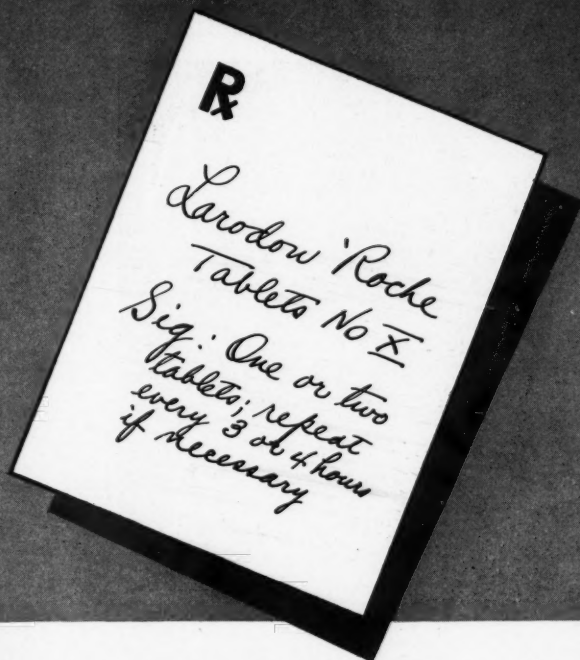 ℞
Larodon 'Roche
Tablets No X
Sig: One or two
tablets; repeat
every 3 or 4 hours
if necessary